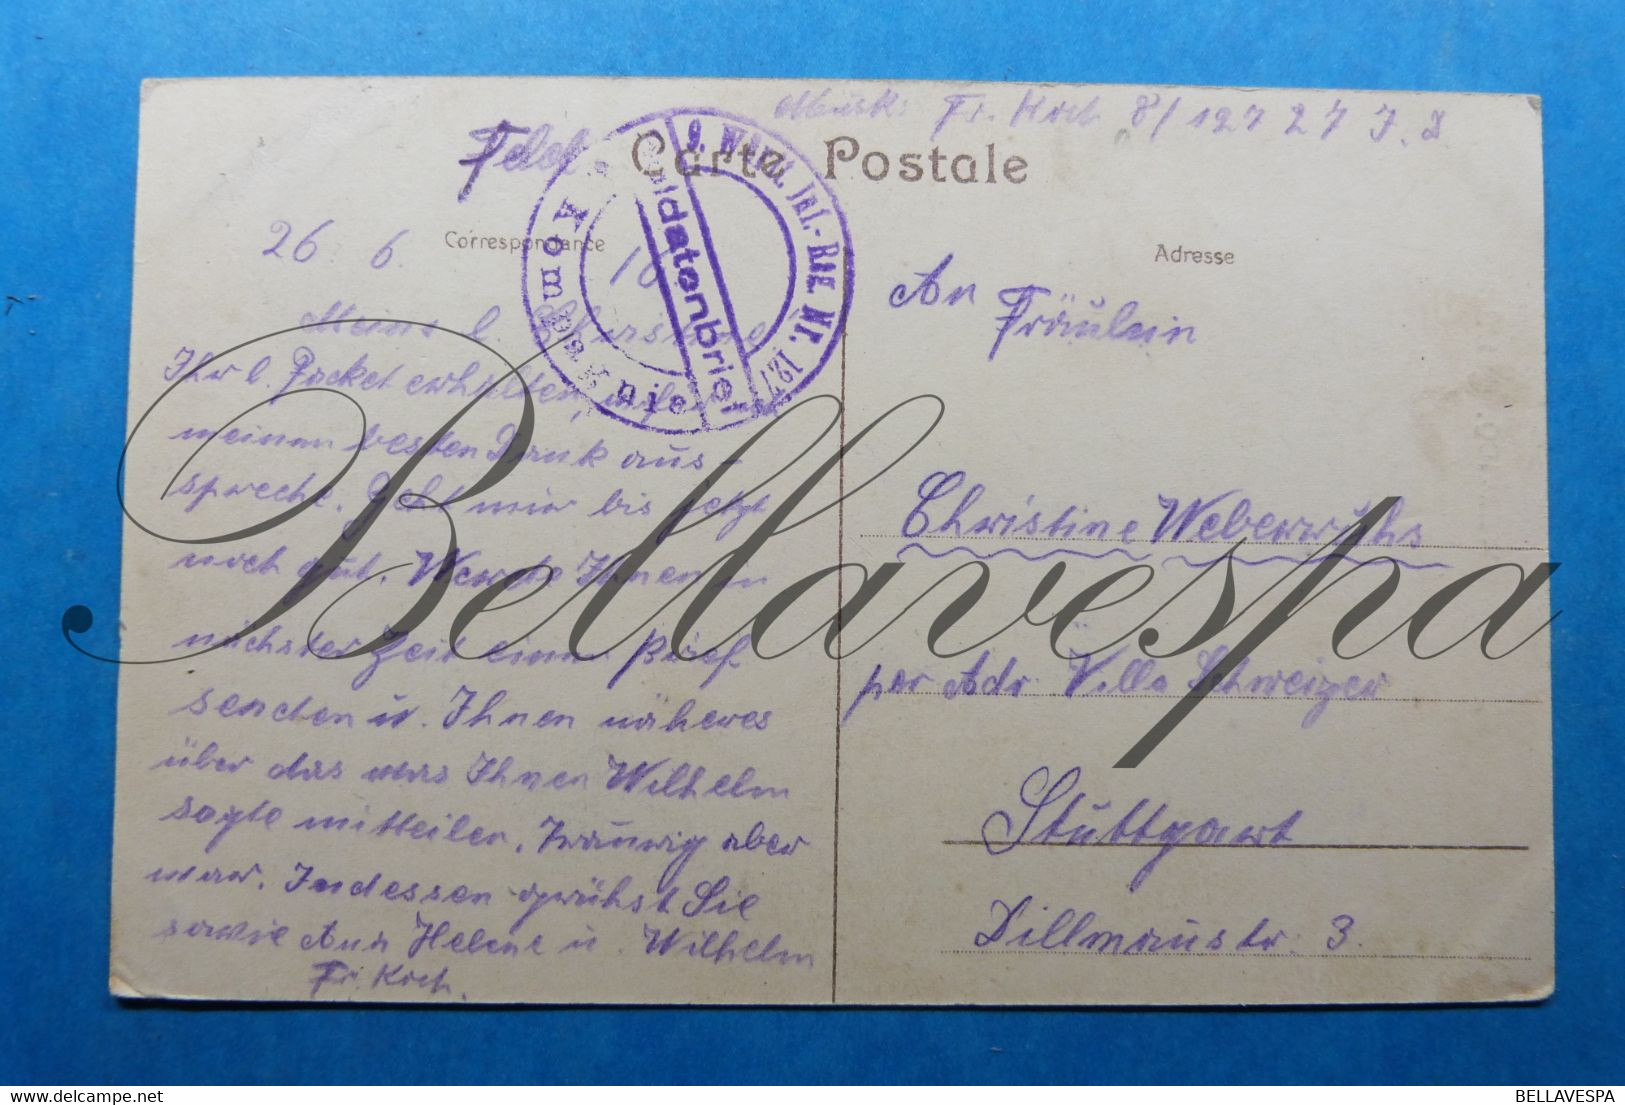 Musk. Fr. Koch 8/127 27 J. D
Feld
Carte Postale
9. Württ. Inf.-Reg. Nr. 127
Soldatenbrief
Kompagnie
Correspondance
Adresse
26. 6. 16
Meine l.
Ihr l. Packet erhalten,
meinen besten Dank aus-
spreche. Geht mir bis jetzt
noch gut. Werde Ihnen in
nächster Zeit einen Brief
senden u. Ihnen näheres
über das was Ihnen Wilhelm
sagte mitteilen. Traurig aber
war. Indessen grühst Sie
sowie Helene u. Wilhelm
Fr. Koch.
An
Fräulein
Christine Weberruhs
per Adr. Villa Schweizer
Stuttgart
Dillmanstr. 3.
Bellavespa
BELLAVESPA